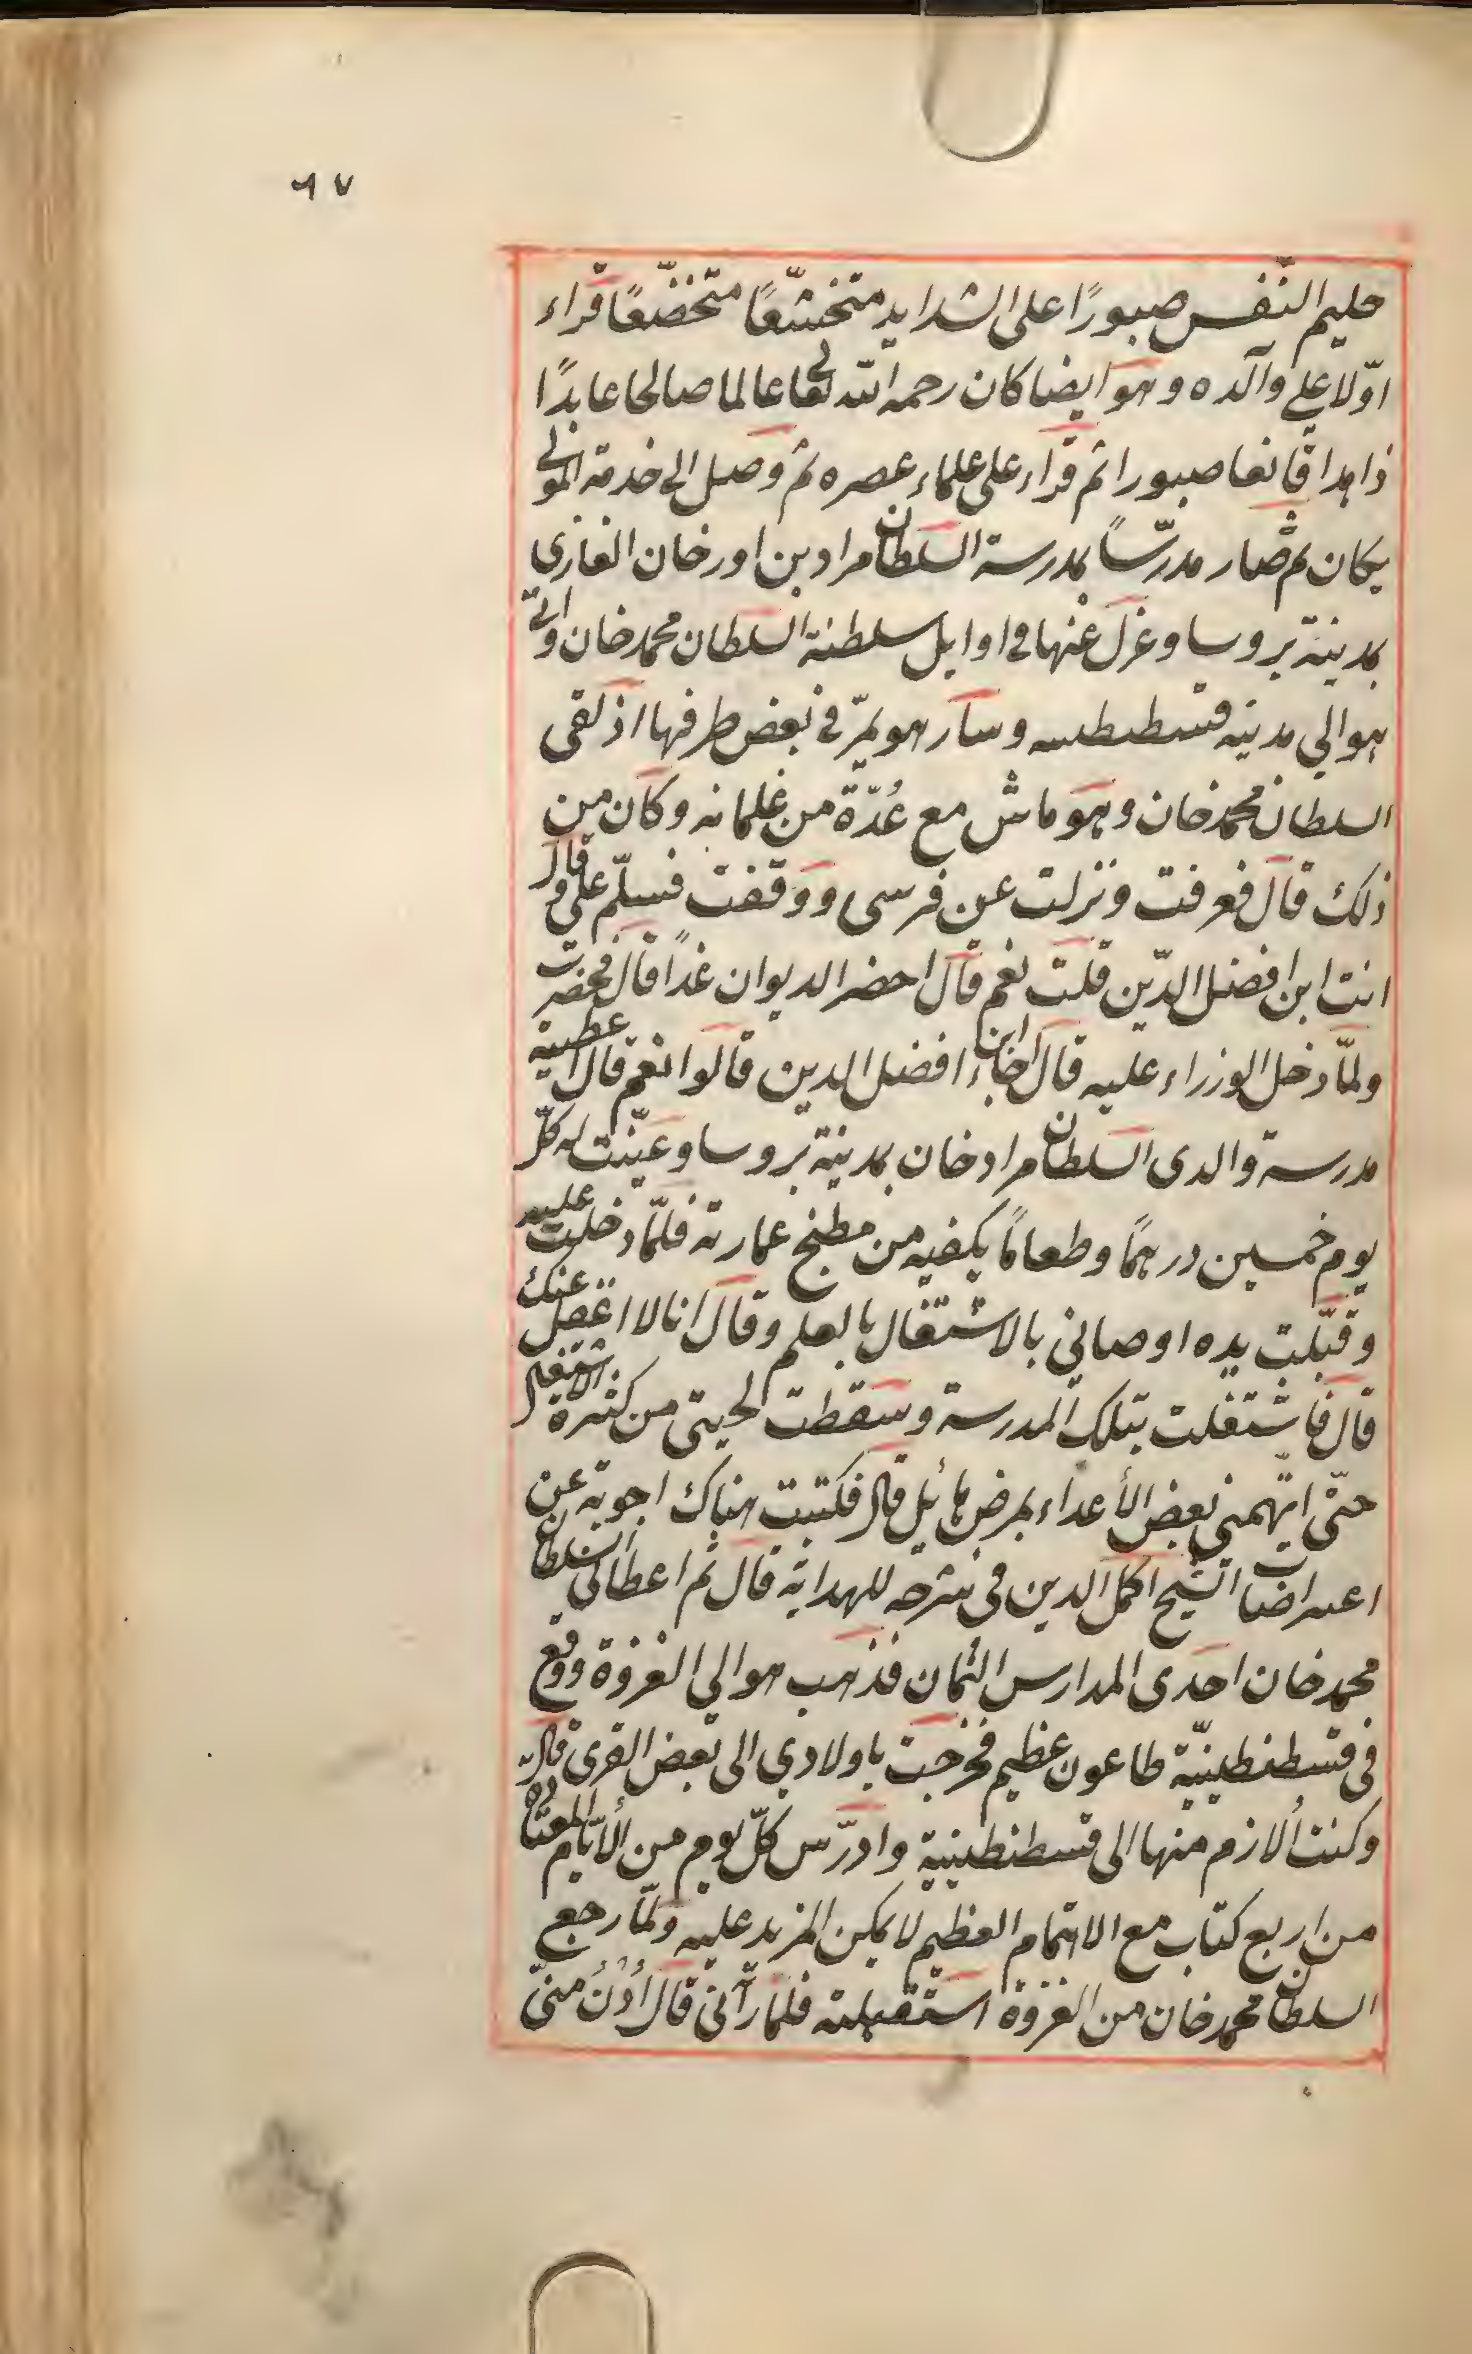 ٦٧
حليم النّفس صبورًا على الشدايد متخشّعًا متخضّعًا قراء
اوّلا علي والده وهو ايضا كان رحمه الله تعالى عالما صالحا عابدًا
ذاهدا قانعا صبورا ثم قراء على علماء عصره ثم وصل الى خدمة المولى
يكان ثم صار مدرّساً بمدرسة السلطان مراد بن اورخان الغازى
بمدينة بروسا وعزل عنها في اوايل سلطنة السلطان محمد خان واتى
هو الي مدينه قسطنطنيه وسار هو يمرّ في بعض طرفها اذ لقى
السلطان محمد خان وهو ماش مع عُدّة من غلمانه وكان من
ذلك قال فعرفت ونزلت عن فرسى ووقفت فسلّم على وقال
انت ابن افضل الدّين قلت نعم قال احضر الديوان غداً قال فحضرت
ولمّا دخل الوزراء عليه قال اجاء ابن افضل الدين قالوا نعم قال اعطيته
مدرسة والدى السلطان مراد خان بمدينة بروسا وعيّنت له كلّ
يوم خمسين درهمًا وطعامًا يكفيه من مطبخ عمارته فلمّا دخلت عليه
وقبّلت يده اوصاني بالاشتغال بالعلم وقال انا لا اغفل عنك
قال فاشتغلت بتلك المدرسة وسقطت لحيتى من كثرة الاشتغال
حتّى اتّهمنى بعض الأعداء بمرض هائل قال فكتبت هناك اجوبة عن
اعتراضات الشيخ اكمل الدين فى شرحه للهداية قال ثم اعطانى السلطان
محمد خان احدى المدارس الثمان فذهب هو الي الغزوة ووقع
فى قسطنطينيّة طاعون عظيم فخرجت باولادي الى بعض القرى قال
وكنت ألازم منها الى قسطنطينية وادرّس كلّ يوم من الأيّام المعتاده
من اربع كتاب مع الاهتمام العظيم لا يمكن المزيد عليه ولمّا رجع
السلطان محمد خان من الغزوة استقبلته فلما رآنى قال اُدْنُ منىّ